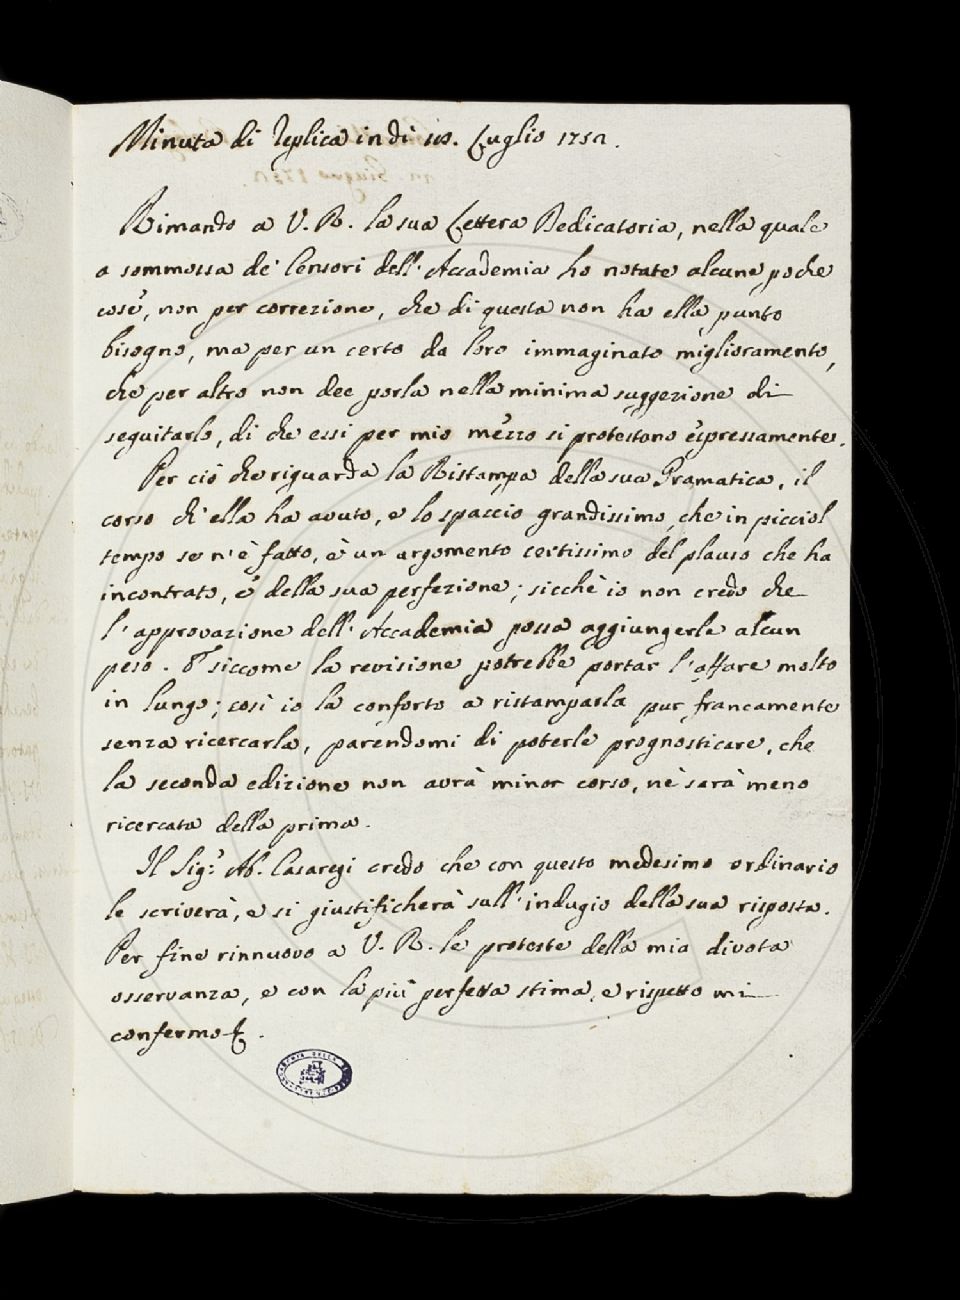 Minuta di Replica in dì 10. Luglio 1750.
Rimando a V. R. la sua Lettera Dedicatoria, nella quale
a sommossa de' Censori dell' Accademia ho notate alcune poche
cose, non per correzione, che di questa non ha ella punto
bisogno, ma per un certo da loro immaginato miglioramento,
che per altro non dee porla nella minima suggezione di
seguitarlo, di che essi per mio mezzo si protestono espressamente.
Per ciò che riguarda la Ristampa della sua Gramatica, il
corso ch' ella ha avuto, e lo spaccio grandissimo, che in picciol
tempo se n'è fatto, è un argomento certissimo del plauso che ha
incontrato, e della sua perfezione; sicchè io non credo che
l'approvazione dell' Accademia possa aggiungerle alcun
peso. E siccome la revisione potrebbe portar l'affare molto
in lungo; così io la conforto a ristamparla pur francamente
senza ricercarla, parendomi di poterle prognosticare, che
la seconda edizione non avrà minor corso, nè sarà meno
ricercata della prima.
Il Sig.r Ab. Casaregi credo che con questo medesimo ordinario
le scriverà, e si giustificherà sull' indugio della sua risposta.
Per fine rinnuovo a V. R. le proteste della mia divota
osservanza, e con la più perfetta stima, e rispetto mi
confermo